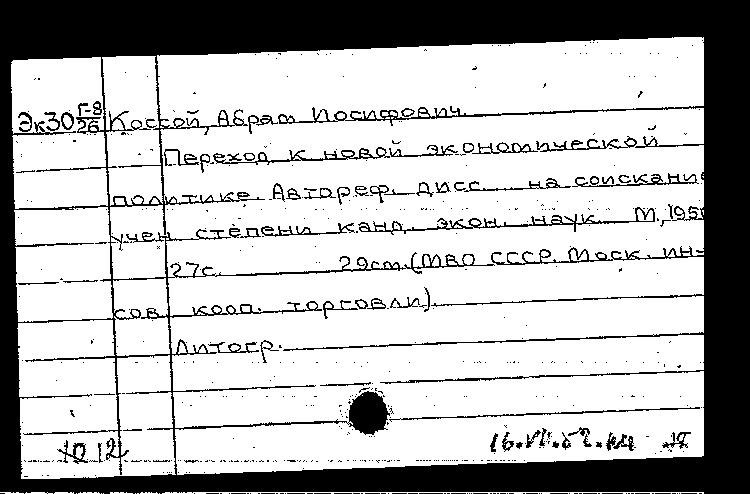 Эк30 Г-8/26 Коссой, Абрам Иосифович.
Переход к новой экономической
политике. Автореф. дисс. на соискание
учен степени канд. экон. наук. М, 195
27с. 29см.(МВО СССР. Моск. ин-
сов. кооп. торговли).
Литогр.
10 12 16.VII.52.